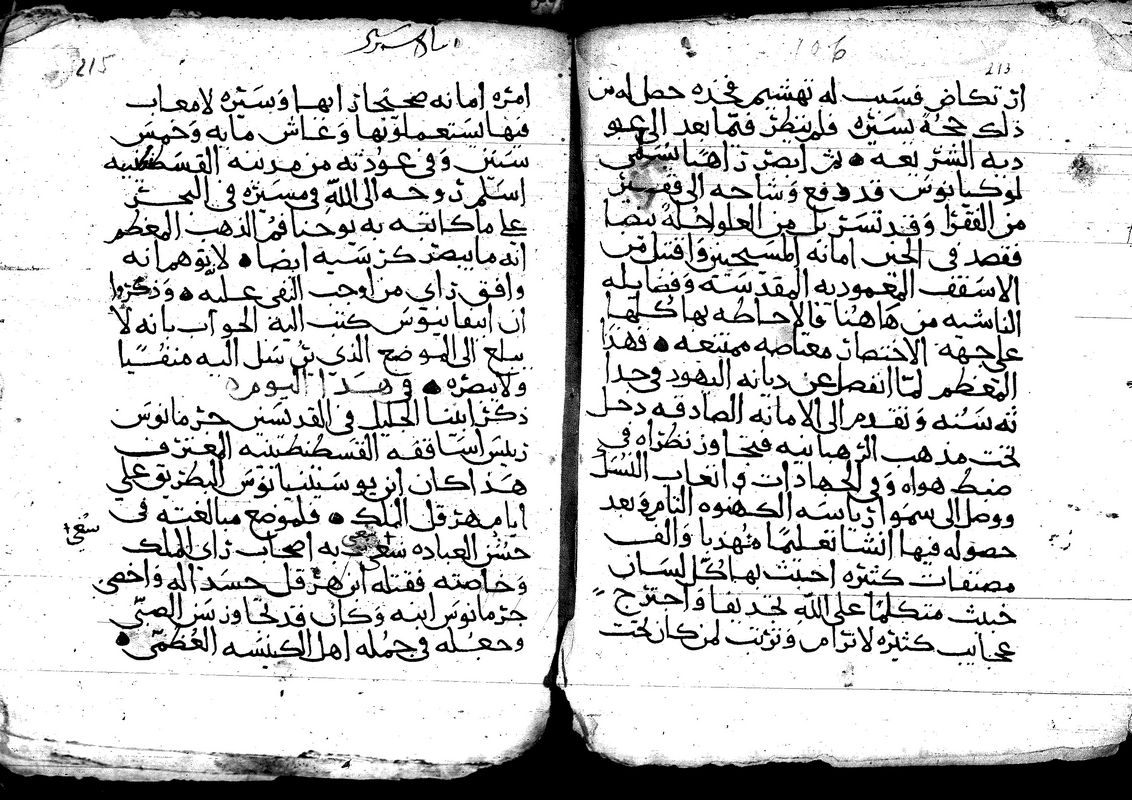 106
213
ان تكاض فسبب له تهشيم فخذه حصل له من
ذلك محنة يسيره فلم ينظر فيما بعد الى عبو
دية الشريعه • ثم ابصر راهبا يسمى
لوكيانوس قد دفع وشاحه الى فقير
من الفقرا وقد تسربل من العلو حله بيضا
فقصد في الحين امانه المسيحيين واقتبل من
الاسقف المعموديه المقدسه وفضايله
الناشيه من هاهنا فالاحاطه بها كلها
على جهة الاختصار معتاصه ممتنعه • فهذا
المعظم لما انفصل عن ديانه اليهود في حدا
ثه سنه وتقدم الى الامانه الصادقه دخل
تحت مذهب الرهبانيه فتجاوز نظراه في
ضبط هواه وفي الجهادات واتعاب النسك
ووصل الى سمو رياسه الكهنوه التام وبعد
حصوله فيها انشا تعليما مهذبا والف
مصنفات كثيره احتث بها كل لسان
خبث متكلما على الله تجديفا واجترح
عجايب كثيره لا ترام وترتب لمن كان تحت
215
امره امانه صحيحا رايها وسيره لا معاب
فيها يستعملونها وعاش مايه وخمس
سنين وفي عودته من مدينه القسطنطينيه
اسلم روحه الى الله في مسيره في البحر
على ما كاتبه به يوحنا فم الذهب المعظم
انه ما يبصر كرسيه ايضا • لا توهم انه
وافق راي من اوجب النفي عليه • وذكروا
ان ابيفانيوس كتب اليه الجواب بانه لا
يبلغ الى الموضع الذي يرسل اليه منفيا
ولا يبصره • في هذا اليوم
ذكر ابينا الجليل في القديسين جرمانوس
رييس اساقفه القسطنطينيه المعترف
هذا كان ابن يوستنيانوس البطريق على
ايام هرقل الملك • فلموضع مبالغته في
حسن العباده سعى به اصحاب راي الملك
وخاصته فقتله ابن هرقل حسدا له واخصى
جرمانوس ابنه وكان قد تجاوز سن الصبي
وجعله في جمله اهل الكنيسه العظمى •
سعى